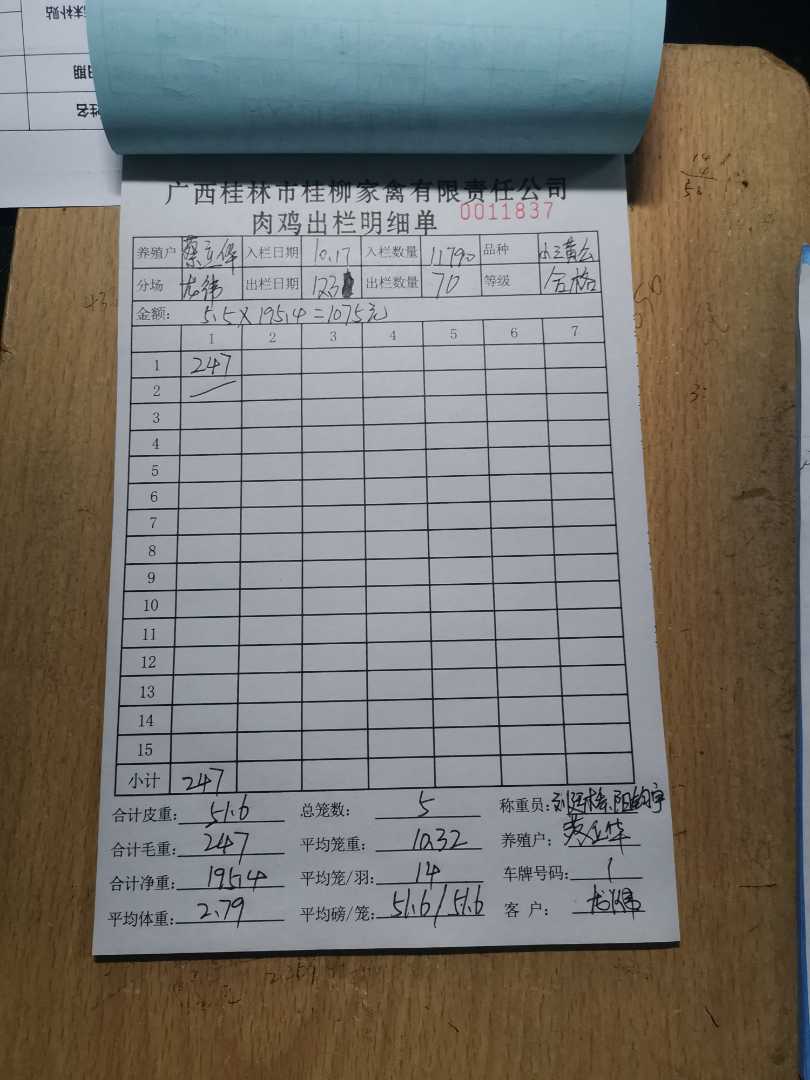 末补贴
日期
姓名
广西桂林市桂柳家禽有限责任公司
肉鸡出栏明细单 0011837
养殖户 蔡立华 入栏日期 10.17 入栏数量 11790 品种
分场 龙伟 出栏日期 123 出栏数量 70 等级 合格
金额: 5.5×195.4=1075元
1 2 3 4 5 6 7
1 247
2
3
4
5
6
7
8
9
10
11
12
13
14
15
小计 247
合计皮重: 51.6 总笼数: 5 称重员:
合计毛重: 247 平均笼重: 10.32 养殖户: 蔡立华
合计净重: 195.4 平均笼/羽: 14 车牌号码: 1
平均体重: 2.79 平均磅/笼: 51.6/51.6 客 户: 龙伟